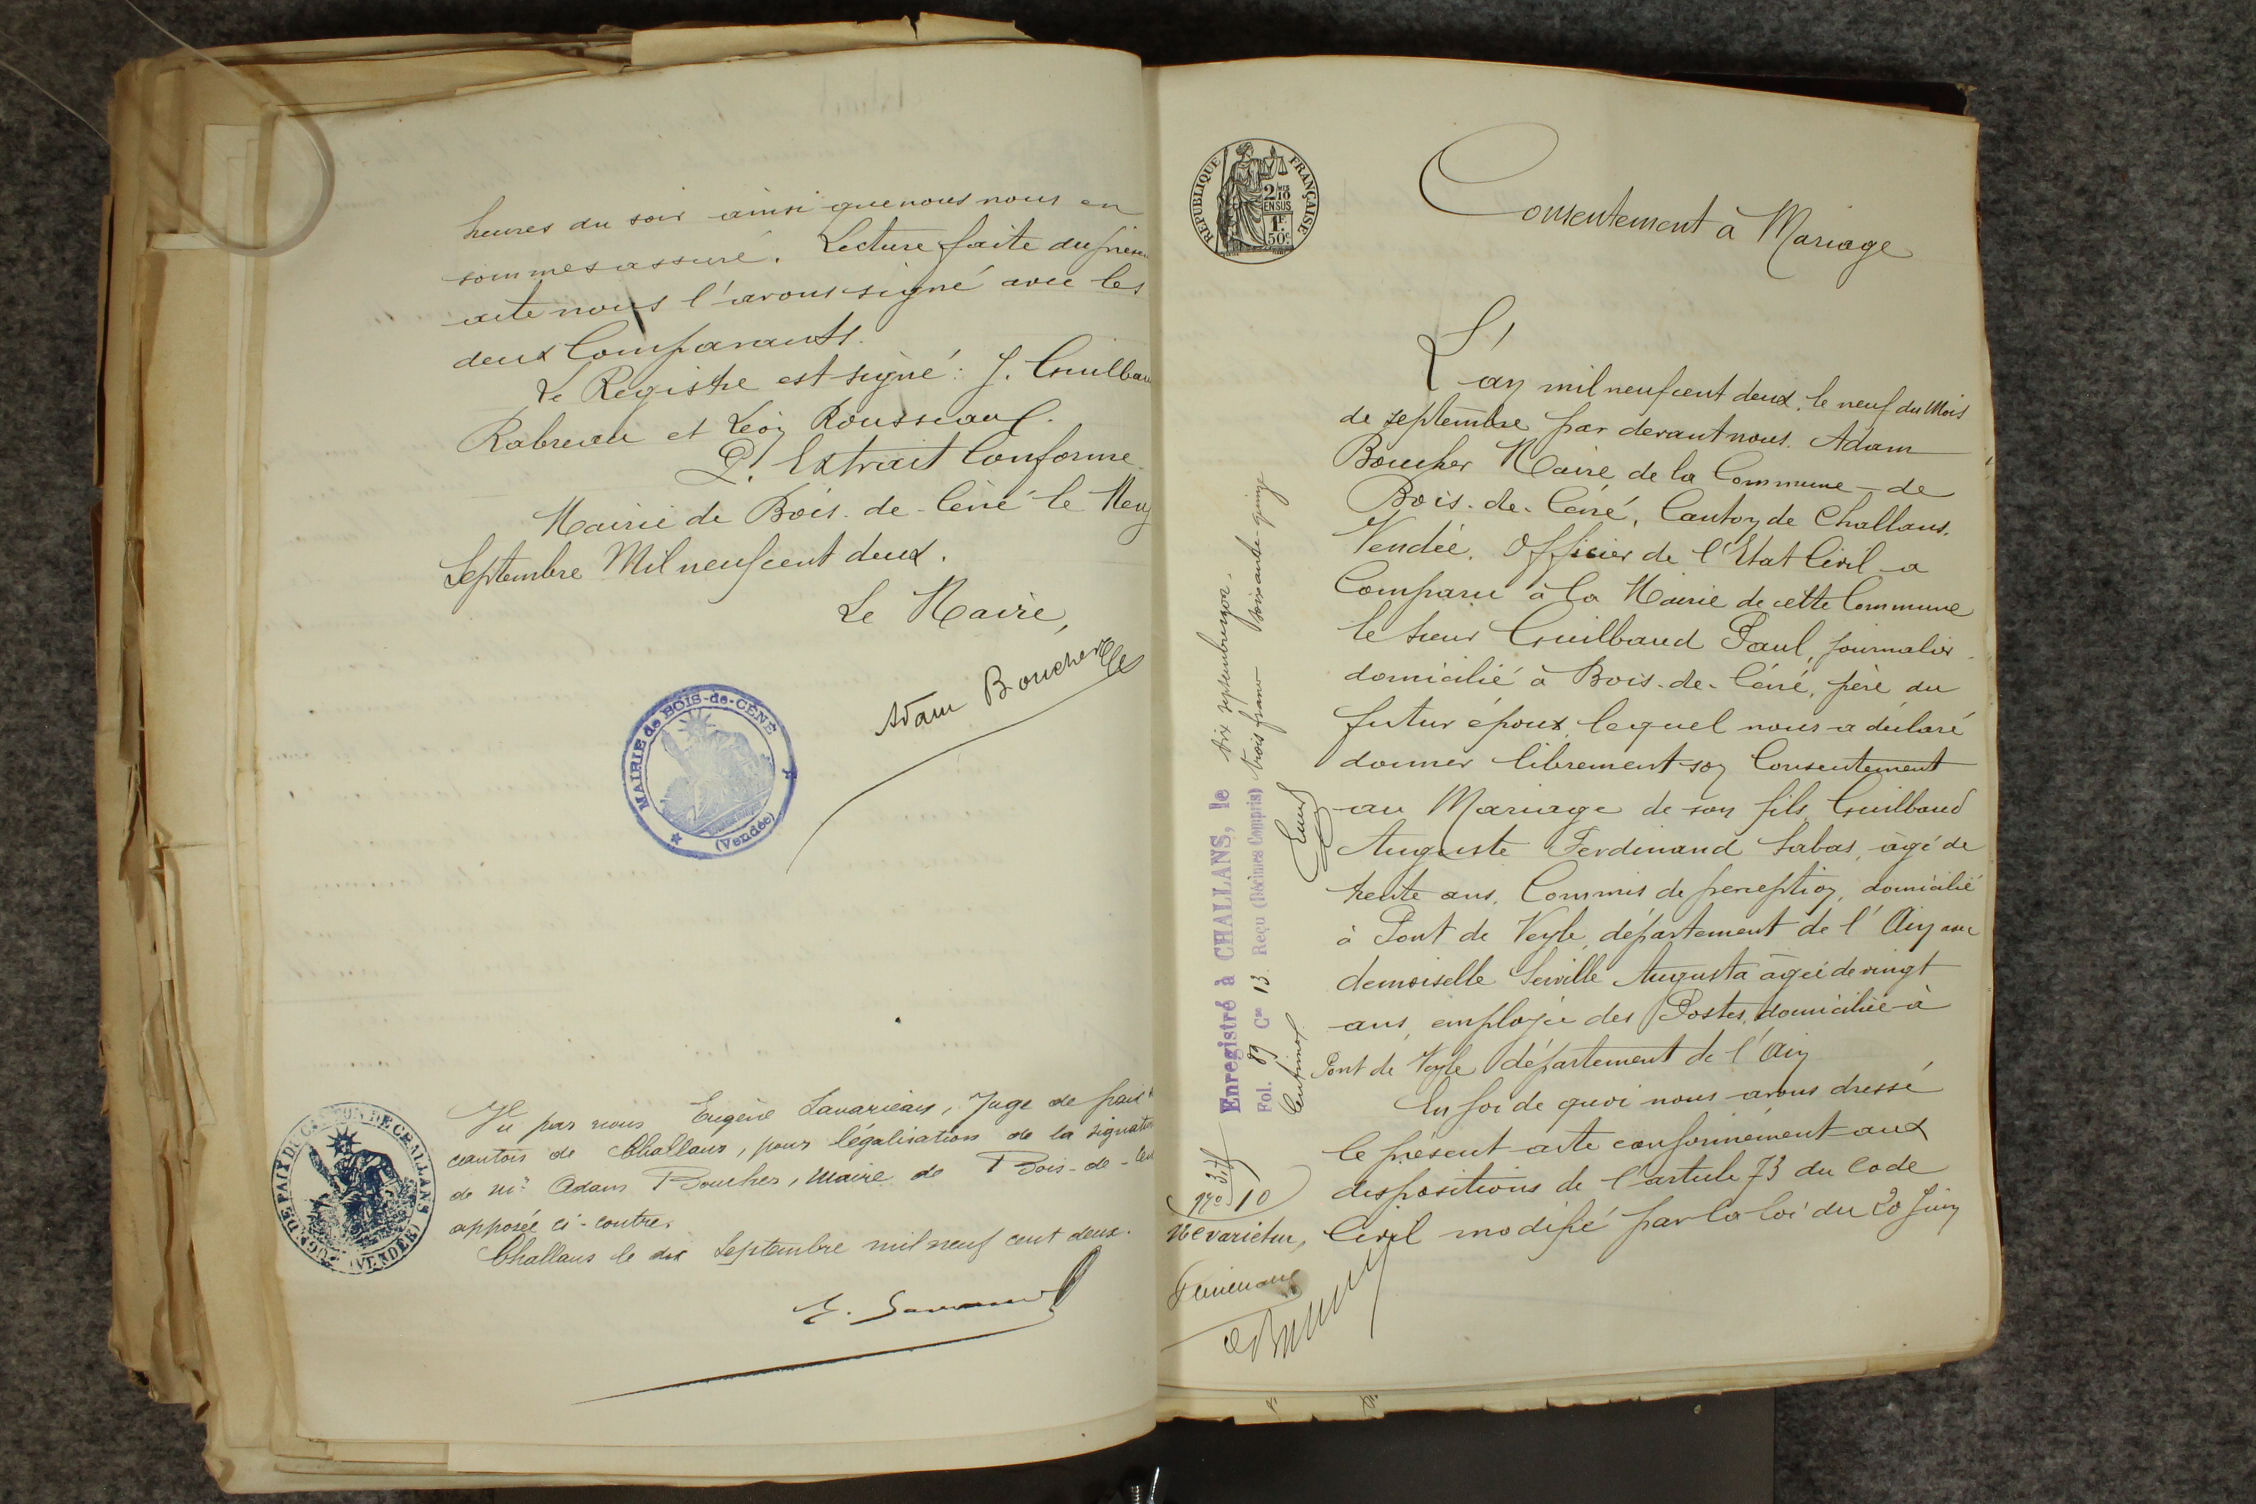 heures du soir ainsi que nous nous en
sommes assuré. Lecture faite du présen
acte nous l'avons signé avec les
deux Comparants.
Le Registre est signé : J. Guilbau
Rabreau et Léon Rousseau.
P. Extrait Conforme
Mairie de Bois-de-Céné le Neuf
Septembre Mil neuf cent deux.
Le Maire,
Adam Boucher
MAIRIE de BOIS-de-CÉNÉ
(Vendée)
Vu par nous Eugène Savarieau, Juge de paix
canton de Challans, pour légalisation de la signatur
de Mr Adam Boucher, Maire de Bois-de-Cén
apposée ci-contre.
Challans le dix Septembre mil neuf cent deux.
JUGE DE PAIX DU CANTON DE CHALLANS
(VENDÉE)
RÉPUBLIQUE FRANÇAISE
2/10
EN SUS
1F.
50c.
Consentement à Mariage
L'an mil neuf cent deux, le neuf du Mois
de septembre par devant nous. Adam
Boucher Maire de la Commune de
Bois-de-Céné, Canton de Challans.
Vendée. Officier de l'Etat Civil a
Comparu à la Mairie de cette Commune
le sieur Guilbaud Paul, journalier
domicilié à Bois-de-Céné, père du
futur époux, lequel nous a déclaré
donner librement son Consentement
au Mariage de son fils Guilbaud
Auguste Ferdinand Sabas, âgé de
trente ans, Commis de perception, domicilié
à Pont de Veyle, département de l'Ain avec
demoiselle Augusta âgée de vingt
ans, employée des Postes, domiciliée à
Pont de Veyle département de l'Ain
En foi de quoi nous avons dressé
le présent acte conformément aux
dispositions de l'article 73 du Code
Civil modifié par la loi du 20 Juin
Enregistré à CHALLANS, le dix septembre 1902
Fol. 89 Cse 13 Reçu (Décimes Compris) trois francs soixante-quinze
Centimes
10
Ne varietur,